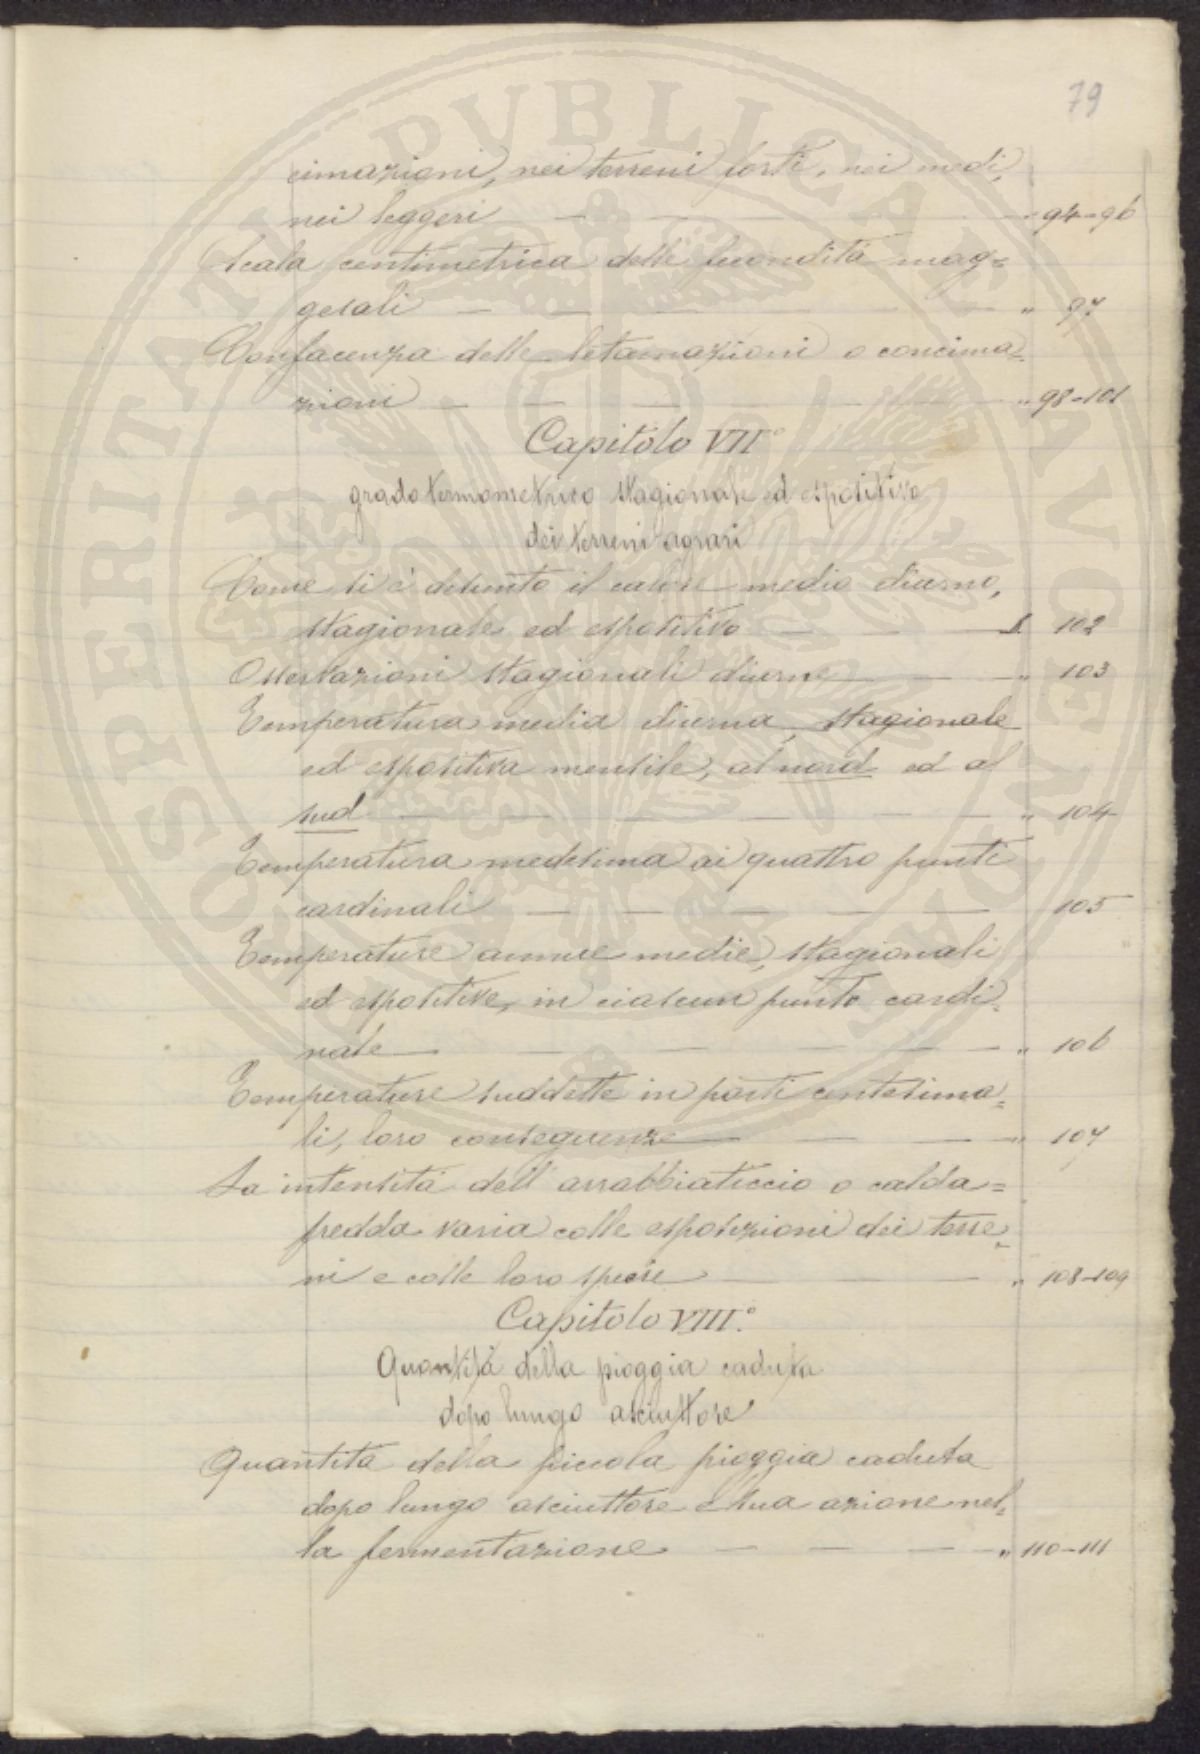 79
cimazioni, nei terreni forti, nei medi,
nei leggeri — — — " 94-96
Scala centimetrica delle fecondità mag=
gesali — — — " 97
Confacenza delle letamazioni o concima=
zioni — — — " 98-101
Capitolo VII°
grado termometrico stagionale ed espositivo
dei terreni agrari
Come si è desunto il calore medio diurno,
stagionale ed espositivo — — 102
Osservazioni stagionali diurne — — " 103
Temperatura media diurna, stagionale
ed espositiva mensile, al nord ed al
sud — — — " 104
Temperatura medesima ai quattro punti
cardinali — — — 105
Temperature annue medie, stagionali
ed espositive, in ciascun punto cardi=
nale — — — " 106
Temperature suddette in parti centesima=
li, loro conseguenze — — " 107
La intensità dell'arrabbiaticcio o calda=
fredda varia colle esposizioni dei terre=
ni e colle loro specie — — " 108-109
Capitolo VIII.°
Quantità della pioggia caduta
dopo lungo asciuttore
Quantità della piccola pioggia caduta
dopo lungo asciuttore e sua azione nel=
la fermentazione — — — " 110-111
PROSPERITATI PVBLICAE AVGENDAE